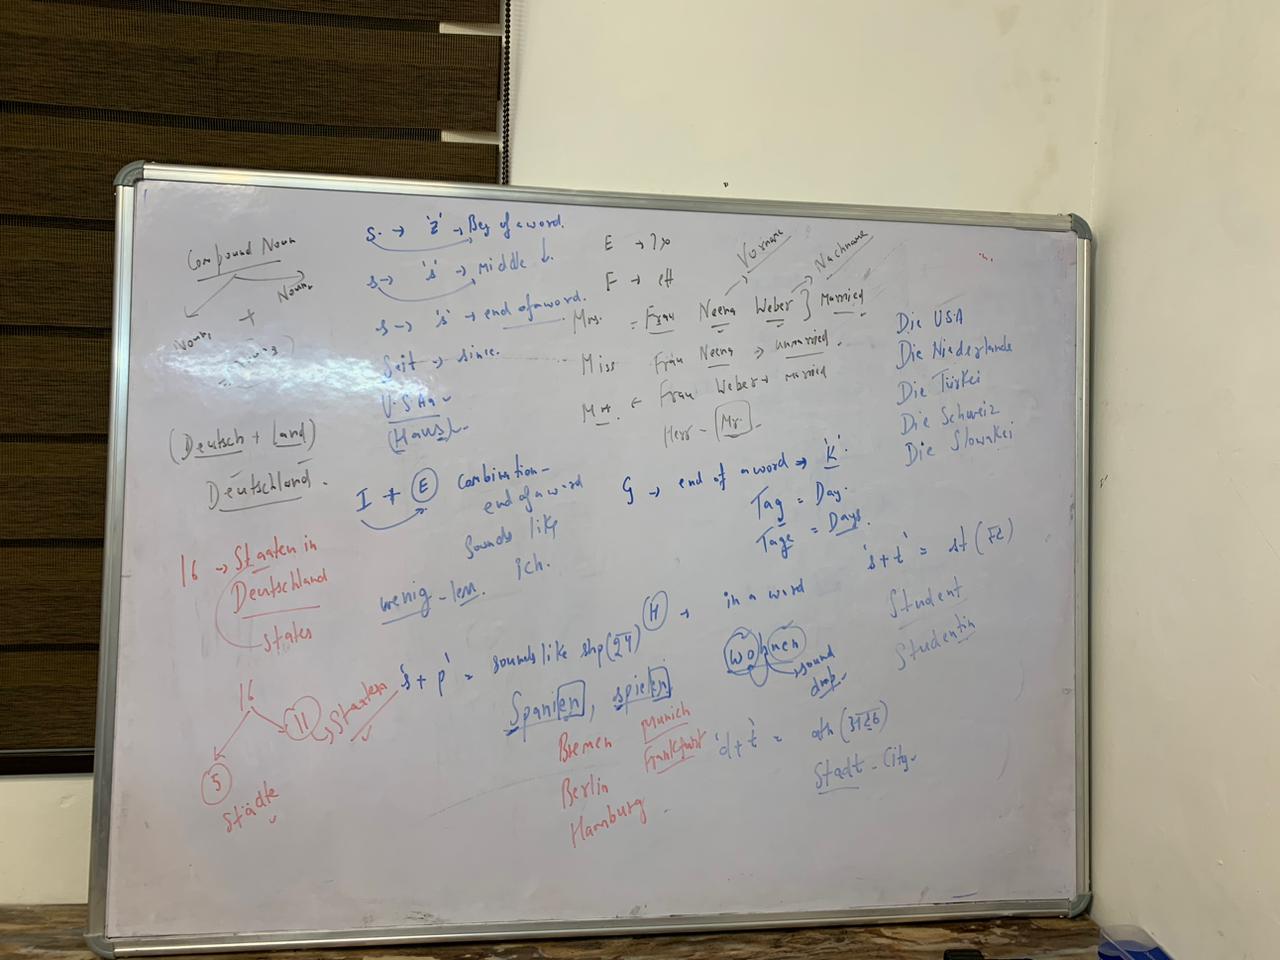 Compound Noun
Noun₁ + Noun₂
(Deutsch + Land)
Deutschland.
16 → Staaten in
Deutschland
states
16
11 → Staaten
5
Städte
S. → 'z' → Beg of a word.
s → 's' → Middle ↓.
s → 's' → end of a word.
Seit → since.
USA
(Haus).
I + E combination -
end of a word
sounds like
ich.
wenig - less.
's + p' = sounds like shp
Spanien, spielen
Bremen Munich
Berlin Frankfurt
Hamburg
E →
F → eff
Vorname Nachname
Mrs. = Frau Neena Weber } Married
Miss Frau Neena → unmarried.
Frau Weber → married
Herr - Mr.
G → end of a word → 'K'.
Tag = Day.
Tage = Days.
H → in a word
wohnen
sound
drop.
'd + t' =
Stadt - City.
Die USA
Die Niederlande
Die Türkei
Die Schweiz
Die Slowakei
's + t' = st
Student
Studentin